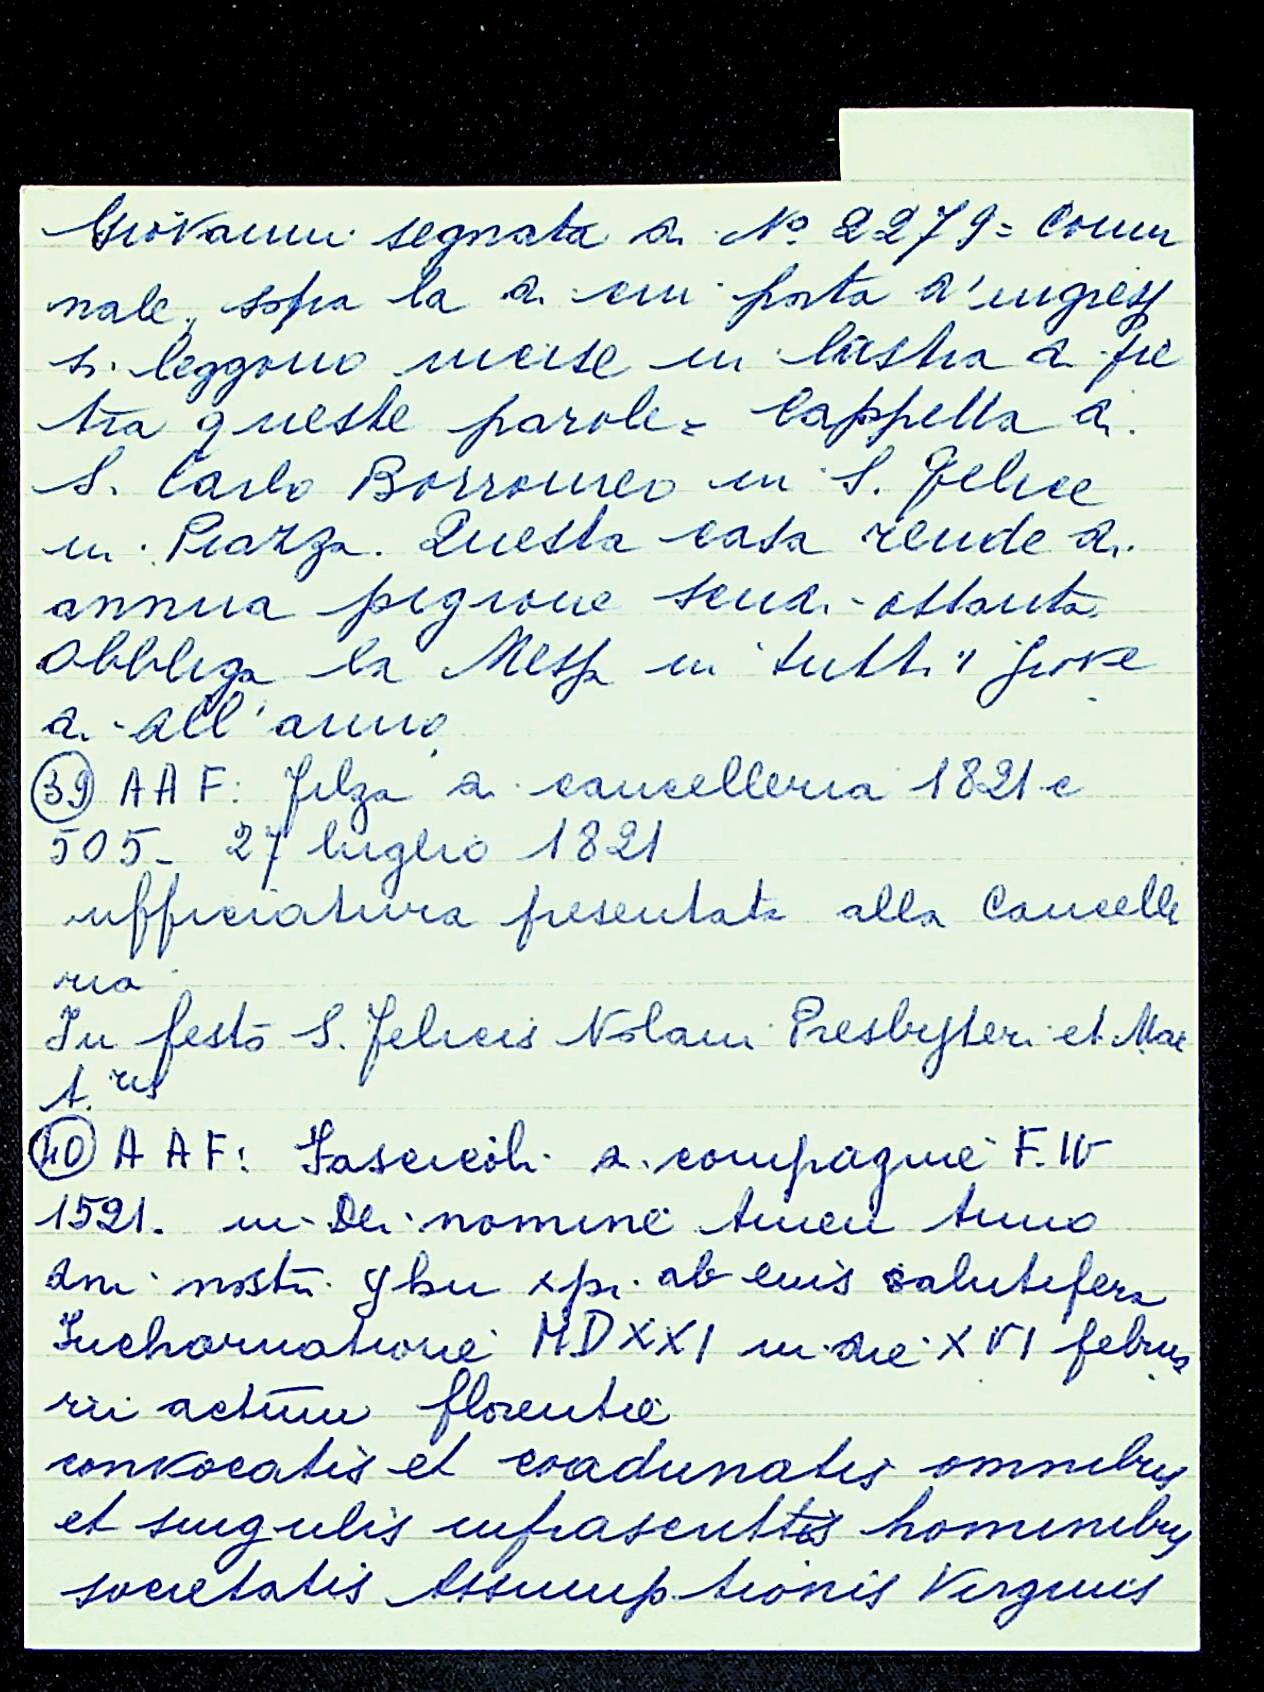 Giovanni segnata di N.º 2279 = Comu
nale, sopra la di cui porta d'ingress
si leggono incise in lastra di pie
tra queste parole = Cappella di
S. Carlo Borromeo in S. Felice
in Piazza. Questa casa rende di
annua pigione scudi ottanta.
Obbliga la Messa in tutti i giove
dì all'anno.
(39) AAF: Filza di cancelleria 1821 c
505 - 27 luglio 1821
ufficiatura presentata alla Cancelle
ria
In festo S. Felicis Nolani Presbyteri et Mar
t.ris
(40) AAF: Fascicoli di compagnie F. IV
1521. in Dei nomine Amen Anno
dni nostri yhu xpi ab euis salutifera
Incharnatione MDXXI in die XVI februa
rii actum florentie
convocatis et coadunatis omnibus
et singulis infrascrittis hominibus
societatis Assumptionis Virginis